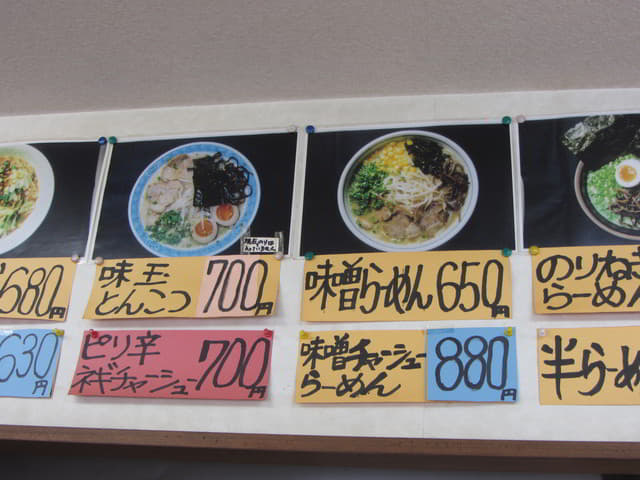 680円
味玉
とんこつ
700円
味噌らーめん 650円
のりねぎ
らーめん
630円
ピリ辛
ネギチャーシュー
700円
味噌チャーシュー
らーめん
880円
半らーめ